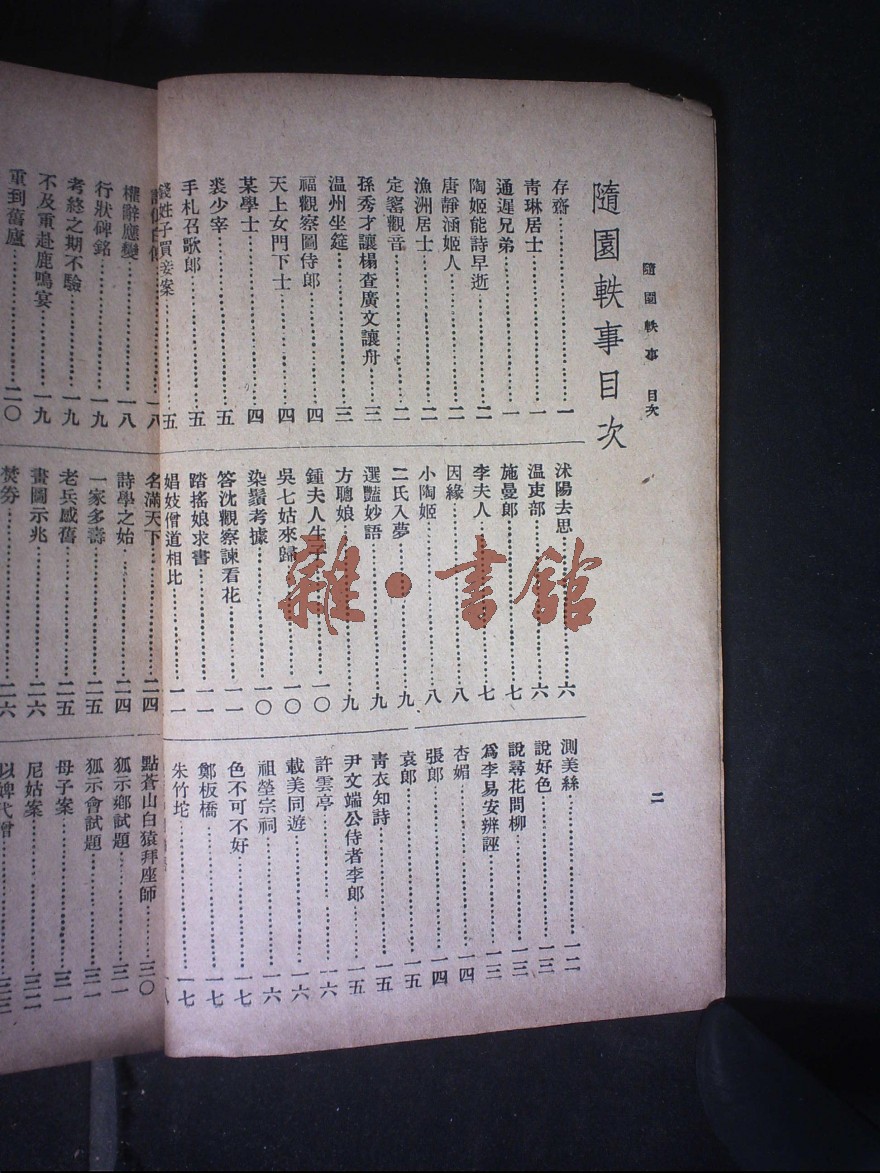 隨園軼事 目次
二
隨園軼事目次
存齋……一
青琳居士……一
通遲兄弟……一
陶姬能詩早逝……二
唐靜涵姬人……二
漁洲居士……二
定窰觀音……二
孫秀才讓楊查廣文讓舟……三
温州坐筵……三
福觀察圖侍郎……四
天上女門下士……四
某學士……四
裘少宰……五
手札召歌郎……五
錢姓子買妾案……五
沭陽去思……六
温吏部……六
施曼郎……七
李夫人……七
因緣……八
小陶姬……八
二氏入夢……九
選豔妙語……九
方聰娘……九
鍾夫人生子……一〇
吳七姑來歸……一〇
染鬚考據……一〇
答沈觀察諫看花……一一
踏搖娘求書……一一
娼妓僧道相比……一一
測美絲……一二
說好色……一三
說尋花問柳……一三
爲李易安辨誣……一三
杏媚……一四
張郎……一四
袁郎……一五
青衣知詩……一五
尹文端公侍者李郎……一五
許雲亭……一六
載美同遊……一六
祖塋宗祠……一六
色不可不好……一七
鄭板橋……一七
朱竹垞……一七
一八
權辭應變……一八
行狀碑銘……一九
考終之期不驗……一九
不及重赴鹿鳴宴……一九
重到舊廬……二〇
名滿天下……二四
詩學之始……二四
一家多壽……二五
老兵感舊……二五
畫圖示兆……二六
焚券……二六
點蒼山白猿拜座師……三〇
狐示鄉試題……三一
狐示會試題……三一
母子案……三一
尼姑案……三二
以婢代僧
雜·書館